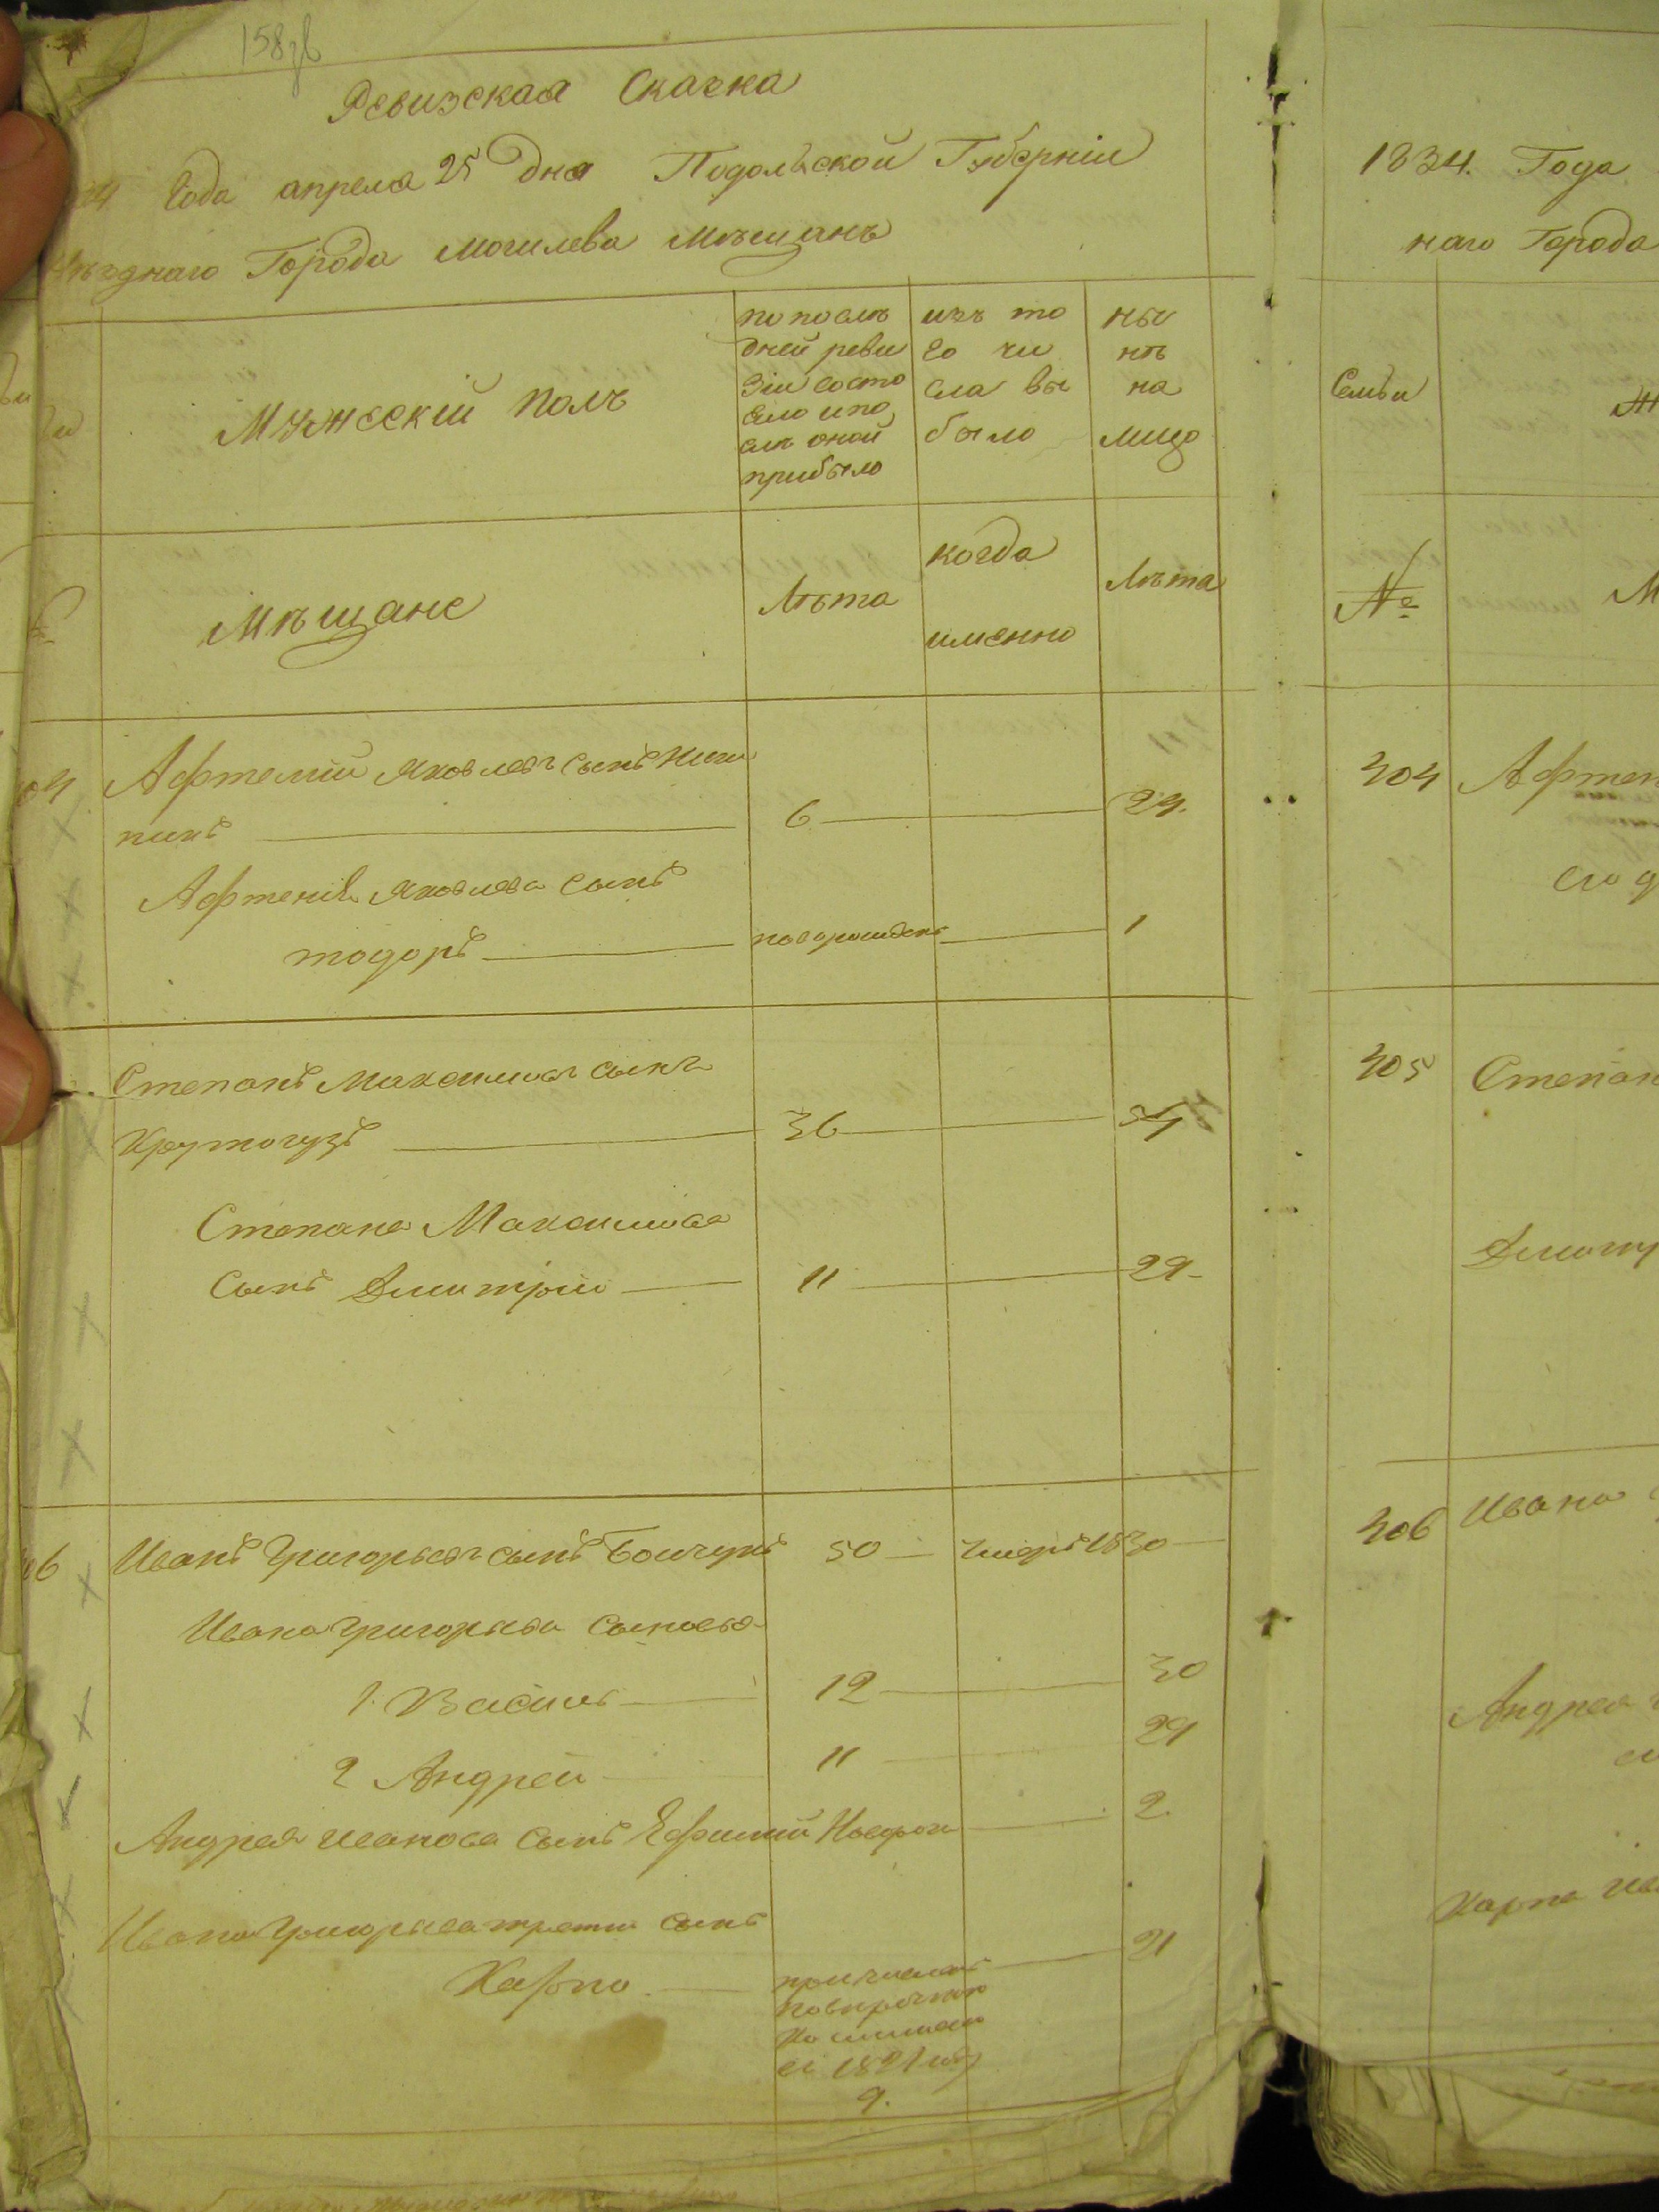 158зв
Ревизская Сказка
34 Года апреля 25 Дня Подольской Губерніи
Уѣзднаго Города Могилева Мѣщанъ
Мужескій полъ
по послѣ
дней реви
зіи состо
яло и по
слѣ оной
прибыло
изъ то
го чи
сла вы
было
ны
нѣ
на
лицо
Мѣщане
Лѣта
когда
именно
Лѣта
04 Афтемій Яковлевъ сынъ
6 29.
Афтенія Яковлева сынъ
тодоръ новорожденъ 1
Степанъ Максимовъ сынъ
Крутогузъ 36 54
Степана Максимова
сынъ Дмитрій 11 29
06 Иванъ Григорьевъ сынъ 50 умеръ 1830
Ивана Григорьева сыновья
1. Василь 12 30
2 Андрей 11 29
Андрея Иванова сынъ Ефимій Новорож 2
Ивана Григорьева трети сынъ
Карпо 21
причисленъ
по
въ 1821 году
9.
1834. Года
наго Города
Семьи
Ж
№
М
304 Афтен
его д
305 Степан
Дмитр
306 Ивана
Андрея
Карпа Ив